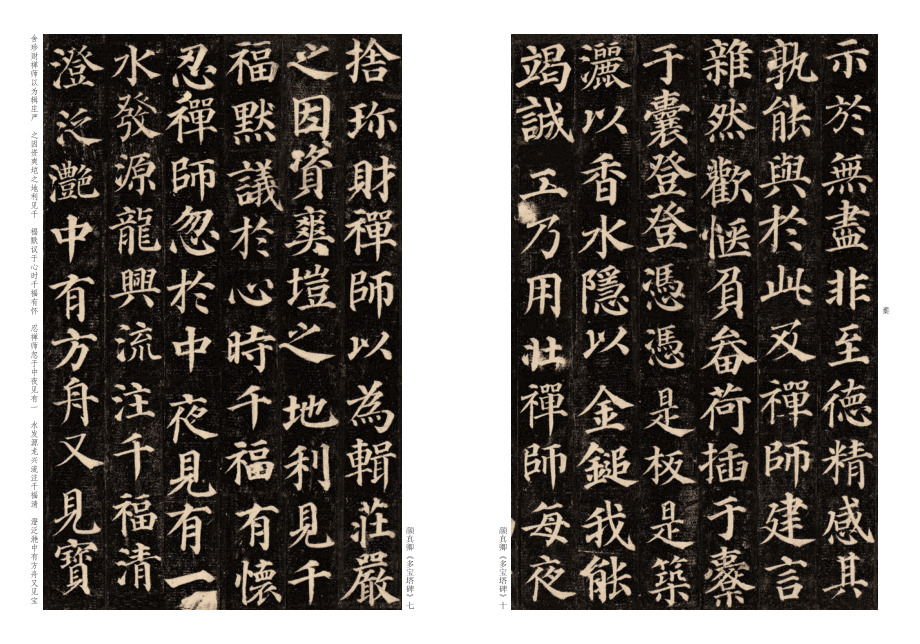 橐
示於無盡非至德精感其
孰能與於此及禪師建言
雜然歡愜負畚荷插于橐
于囊登登憑憑是板是築
灑以香水隱以金鎚我能
竭誠工乃用壯禪師每夜
颜真卿《多宝塔碑》十
颜真卿《多宝塔碑》七
捨珎財禪師以為輯莊嚴
之因資爽塏之地利見千
福默議於心時千福有懷
忍禪師忽於中夜見有一
水發源龍興流注千福清
澄泛灔中有方舟又見寶
舍珍财禅师以为辑庄严 之因资爽垲之地利见千 福默议于心时千福有怀 忍禅师忽于中夜见有一 水发源龙兴流注千福清 澄泛滟中有方舟又见宝